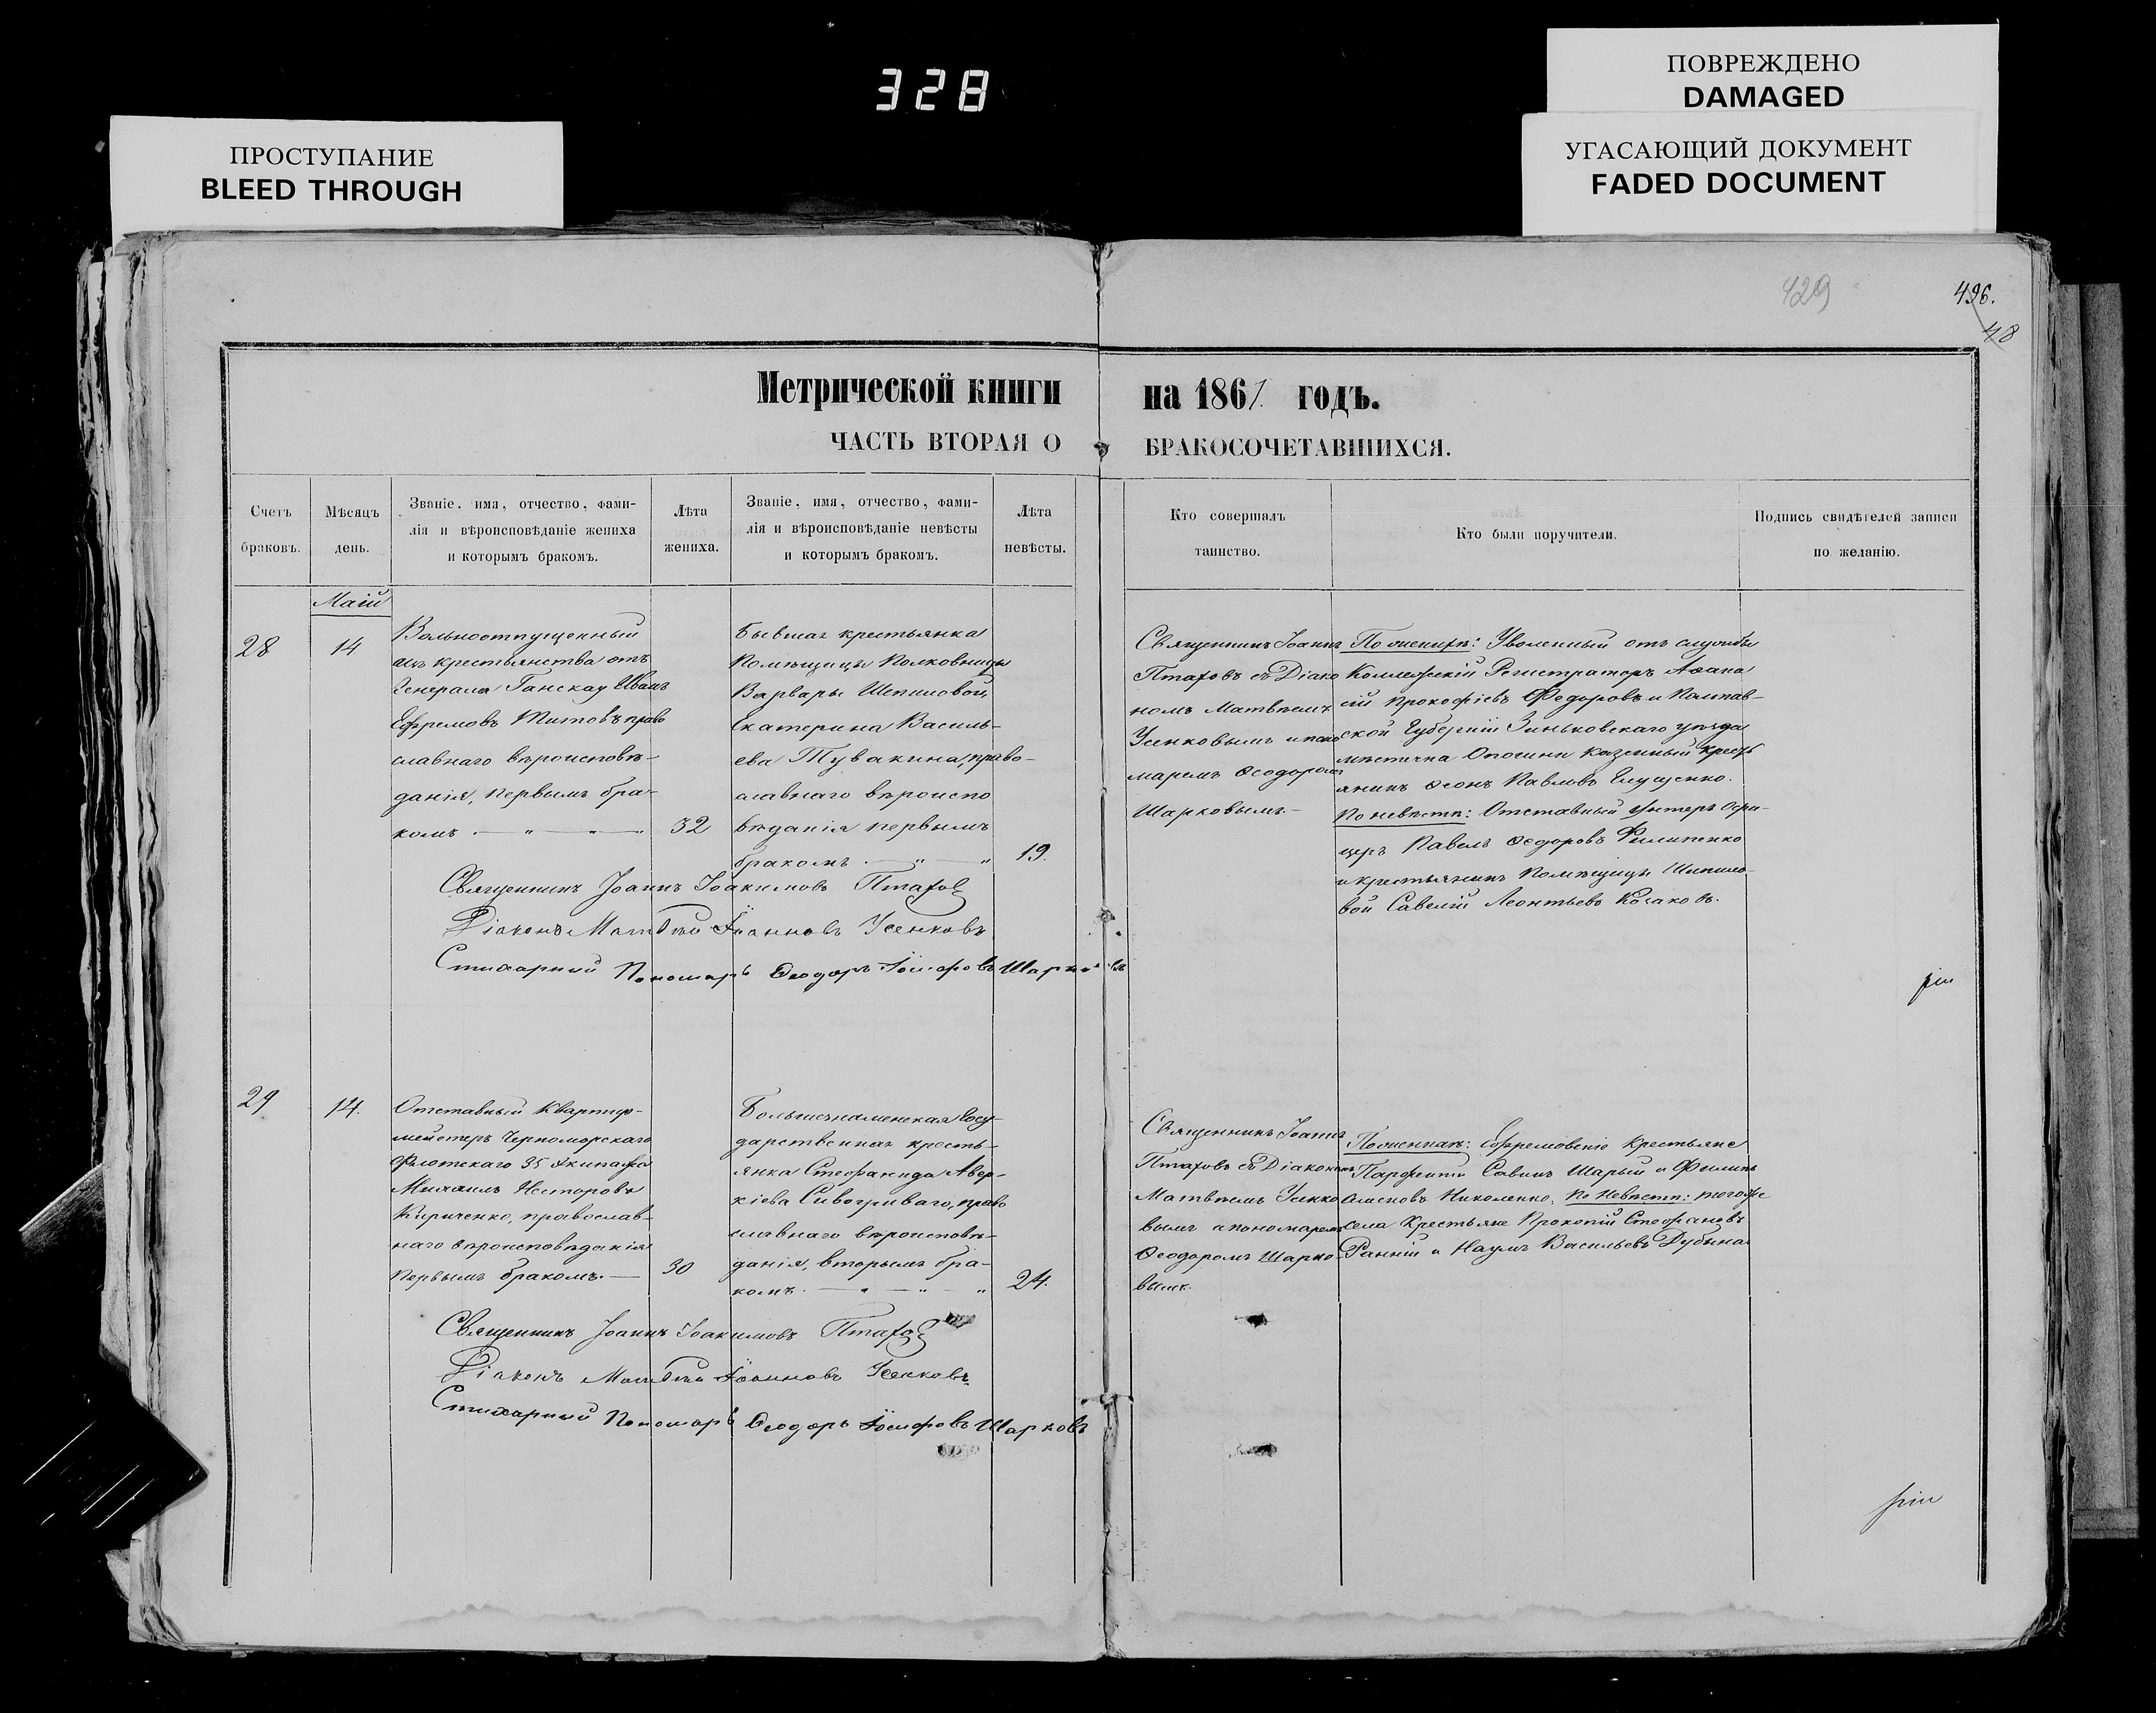 328
ПОВРЕЖДЕНО
DAMAGED
УГАСАЮЩИЙ ДОКУМЕНТ
FADED DOCUMENT
ПРОСТУПАНИЕ
BLEED THROUGH
429
496.
Метрической книги на 1861 годъ.
ЧАСТЬ ВТОРАЯ О БРАКОСОЧЕТАВШИХСЯ.
Счетъ
браковъ.
Мѣсяцъ
день.
Званіе, имя, отчество, фами-
лія и вѣроисповѣданіе жениха
и которымъ бракомъ.
Лѣта
жениха.
Званіе, имя, отчество, фами-
лія и вѣроисповѣданіе невѣсты
и которымъ бракомъ.
Лѣта
невѣсты.
Кто совершалъ
таинство.
Кто были поручители.
Подпись свидѣтелей записи
по желанію.
Маій
28
14
Вольноотпущенный
изъ крестьянства отъ
Генерала Ганскау Иванъ
Ефремовъ Титовъ право
славнаго вѣроисповѣ-
данія, первымъ бра-
комъ
32
Бывшая крестьянка
Помѣщицы Полковницы
Варвары Шепиловой,
Екатерина Василь-
ева Тувакина, право-
славнаго вѣроиспо
вѣданія первымъ
бракомъ
19.
Священникъ Іоаннъ
Птаховъ съ Діако
номъ Матвѣемъ
Усенковымъ и поно
маремъ Ѳеодоромъ
Шарковымъ.
По женихѣ: Уволенный отъ службы
Коллежскій Регистраторъ Аѳана
сій Прокофіевъ Федоровъ и Полтав-
ской Губерніи Зиньковскаго уѣзда
мѣстечка Опошни казенный кресть
янинъ Павловъ
По невѣстѣ: Отставный Унтеръ Офи-
церъ Павелъ Ѳеодоровъ Филипенко
и крестьянинъ Помѣщицы Шепило-
вой Савелій Леонтьевъ
Священникъ Іоаннъ Іоакимовъ Птаховъ
Діаконъ Матвѣй Іоанновъ Усенковъ
Стихарный Пономарь Ѳеодоръ Іосифовъ Шарковъ
29
14.
Отставный Квартир-
мейстеръ Черноморскаго
Флотскаго 35 Экипажа
Михаилъ Несторовъ
Кириченко, православ-
наго вѣроисповѣданія
Первымъ бракомъ.
30
Большезнаменская Госу-
дарственная кресть-
янка Стефанида Авер-
кіева Сивогриваго, право
славнаго вѣроисповѣ-
данія, вторымъ бра-
комъ.
24.
Священникъ Іоаннъ
Птаховъ съ Діакономъ
Матвѣемъ Усенко
вымъ и пономаремъ
Ѳеодоромъ Шарко-
вымъ.
По женихѣ: Ефремовскіе крестьяне
Парфентій Савинъ Шарый и Филипъ
Николенко. По невѣстѣ: тогоже
села Крестьяне Прокопій Стефановъ
Ранній и Наумъ Васильевъ Дубына
Священникъ Іоаннъ Іоакимовъ Птаховъ
Діаконъ Матвѣй Іоанновъ Усенковъ
Стихарный Пономарь Ѳеодоръ Іосифовъ Шарковъ